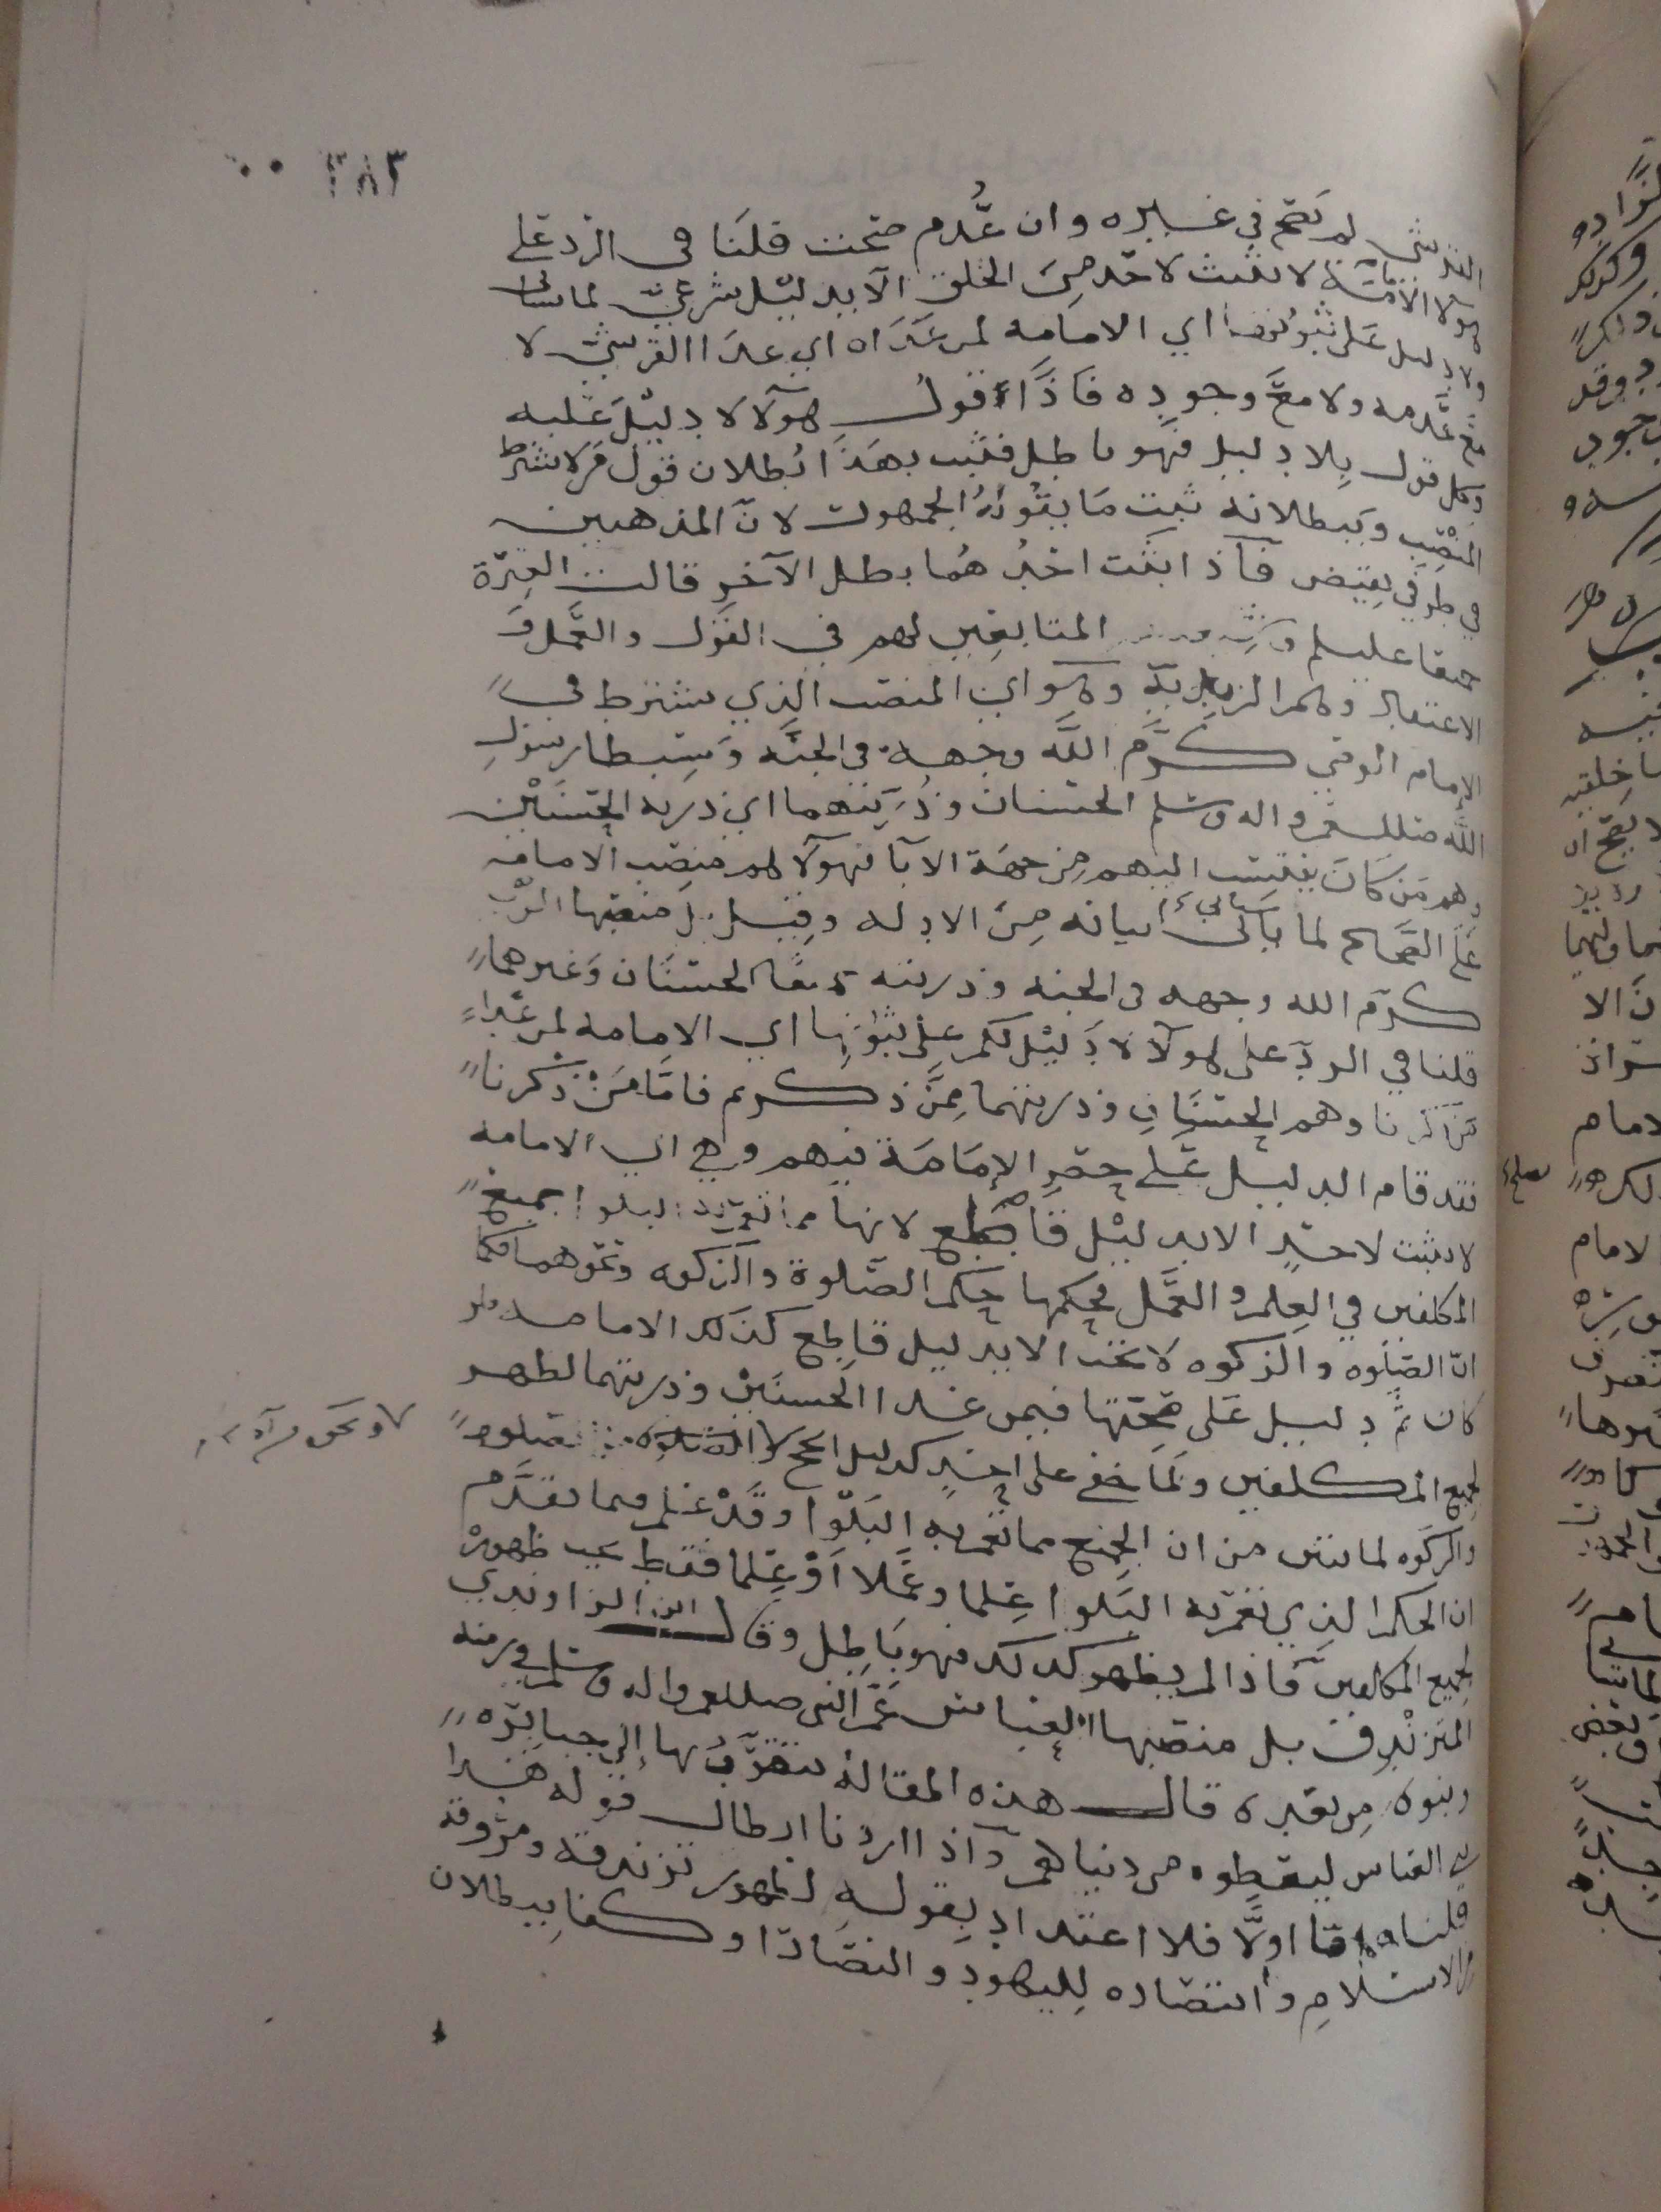 ٣٨٣
القرشي لم تصح في غيره وان عُدم صحت قلنا في الرد على
هولا الامامة لا تثبت لاحد من الخلق الا بدليل شرعي لما سياتي
ولا دليل على ثبوتها اي الامامه لمن عداه اي عدا القرشي لا
مع عدمه ولا مع وجوده فاذاً قول هولآ لا دليل عليه
وكل قول بلا دليل فهو باطل فثبت بهذا بطلان قول من لا يشترط
المنصب وببطلانه ثبت ما يقوله الجمهور لان المذهبين
في طرفي نقيض فاذا ثبت احدهما بطل الآخر قالت العترة
جميعا عليلم المتابعين لهم في القول والعمل و
الاعتقاد وهم الزيدية وهو اي المنصب الذي يشترط في
الامام الوصي كرّم اللّه وجهه في الجنّه وسبطا رسول
اللّه صلللم واله وسلم الحسنان وذريتهما اي ذرية الحسنين
وهم من كان ينتسب اليهم من جهة الابآ فهولآ هم منصب الامامه
على الصحيح لما ياتي بيانه من الادله وقيل بل منصبها الوصي
كرّم الله وجهه في الجنه وذريته جميعًا الحسنان وغيرهما
قلنا في الرد على هولآ لا دليل لكم على ثبوتها اي الامامه لمن عدا
من ذكرنا وهم الحسنان وذريتهما ممن ذكرتم فامّا من ذكرنا
فقد قام الدليل على حصر الإمامة فيهم وهي اي الامامه
لا تثبت لاحدٍ الا بدليل قاطع لانها مما تعم به البلوا جميع
المكلفين في العلم والعمل فحكمها حكم الصلوة والزكوه ونحوهما فكما
انّ الصلوه والزكوه لا تثبت الا بدليل قاطع كذلك الامامه ولو
كان ثَمَّ دليل على صحتها فيمن عدا الحسنين وذريتهما لظهر
لجميع المكلفين ولما خفي على احدٍ كدليل الحج والصلوه
والزكوه لما ثبت من ان الجميع مما تعم به البلوا وقد علم مما تقدّم
ان الحكم الذي تعم به البلوا علما وعملا اوْ علما فقط يجب ظهوره
لجميع المكلفين فاذا لم يظهر كذلك فهو باطل وقال ابن الراوندي
المتزندق بل منصبها العباس عمّ النبي صلللم واله وسلم
وبنوه من بعده قال هذه المقالة يتقرّب بها إلى جبابره
بني العباس ليعطوه من دنياهم واذا اردنا ابطال قوله هذا
قلنا اما اولّا فلا اعتداد بقوله لظهور تزندقه ومروقه
من الاسلام وانتصاره لليهود والنصارا وكفا ببطلان